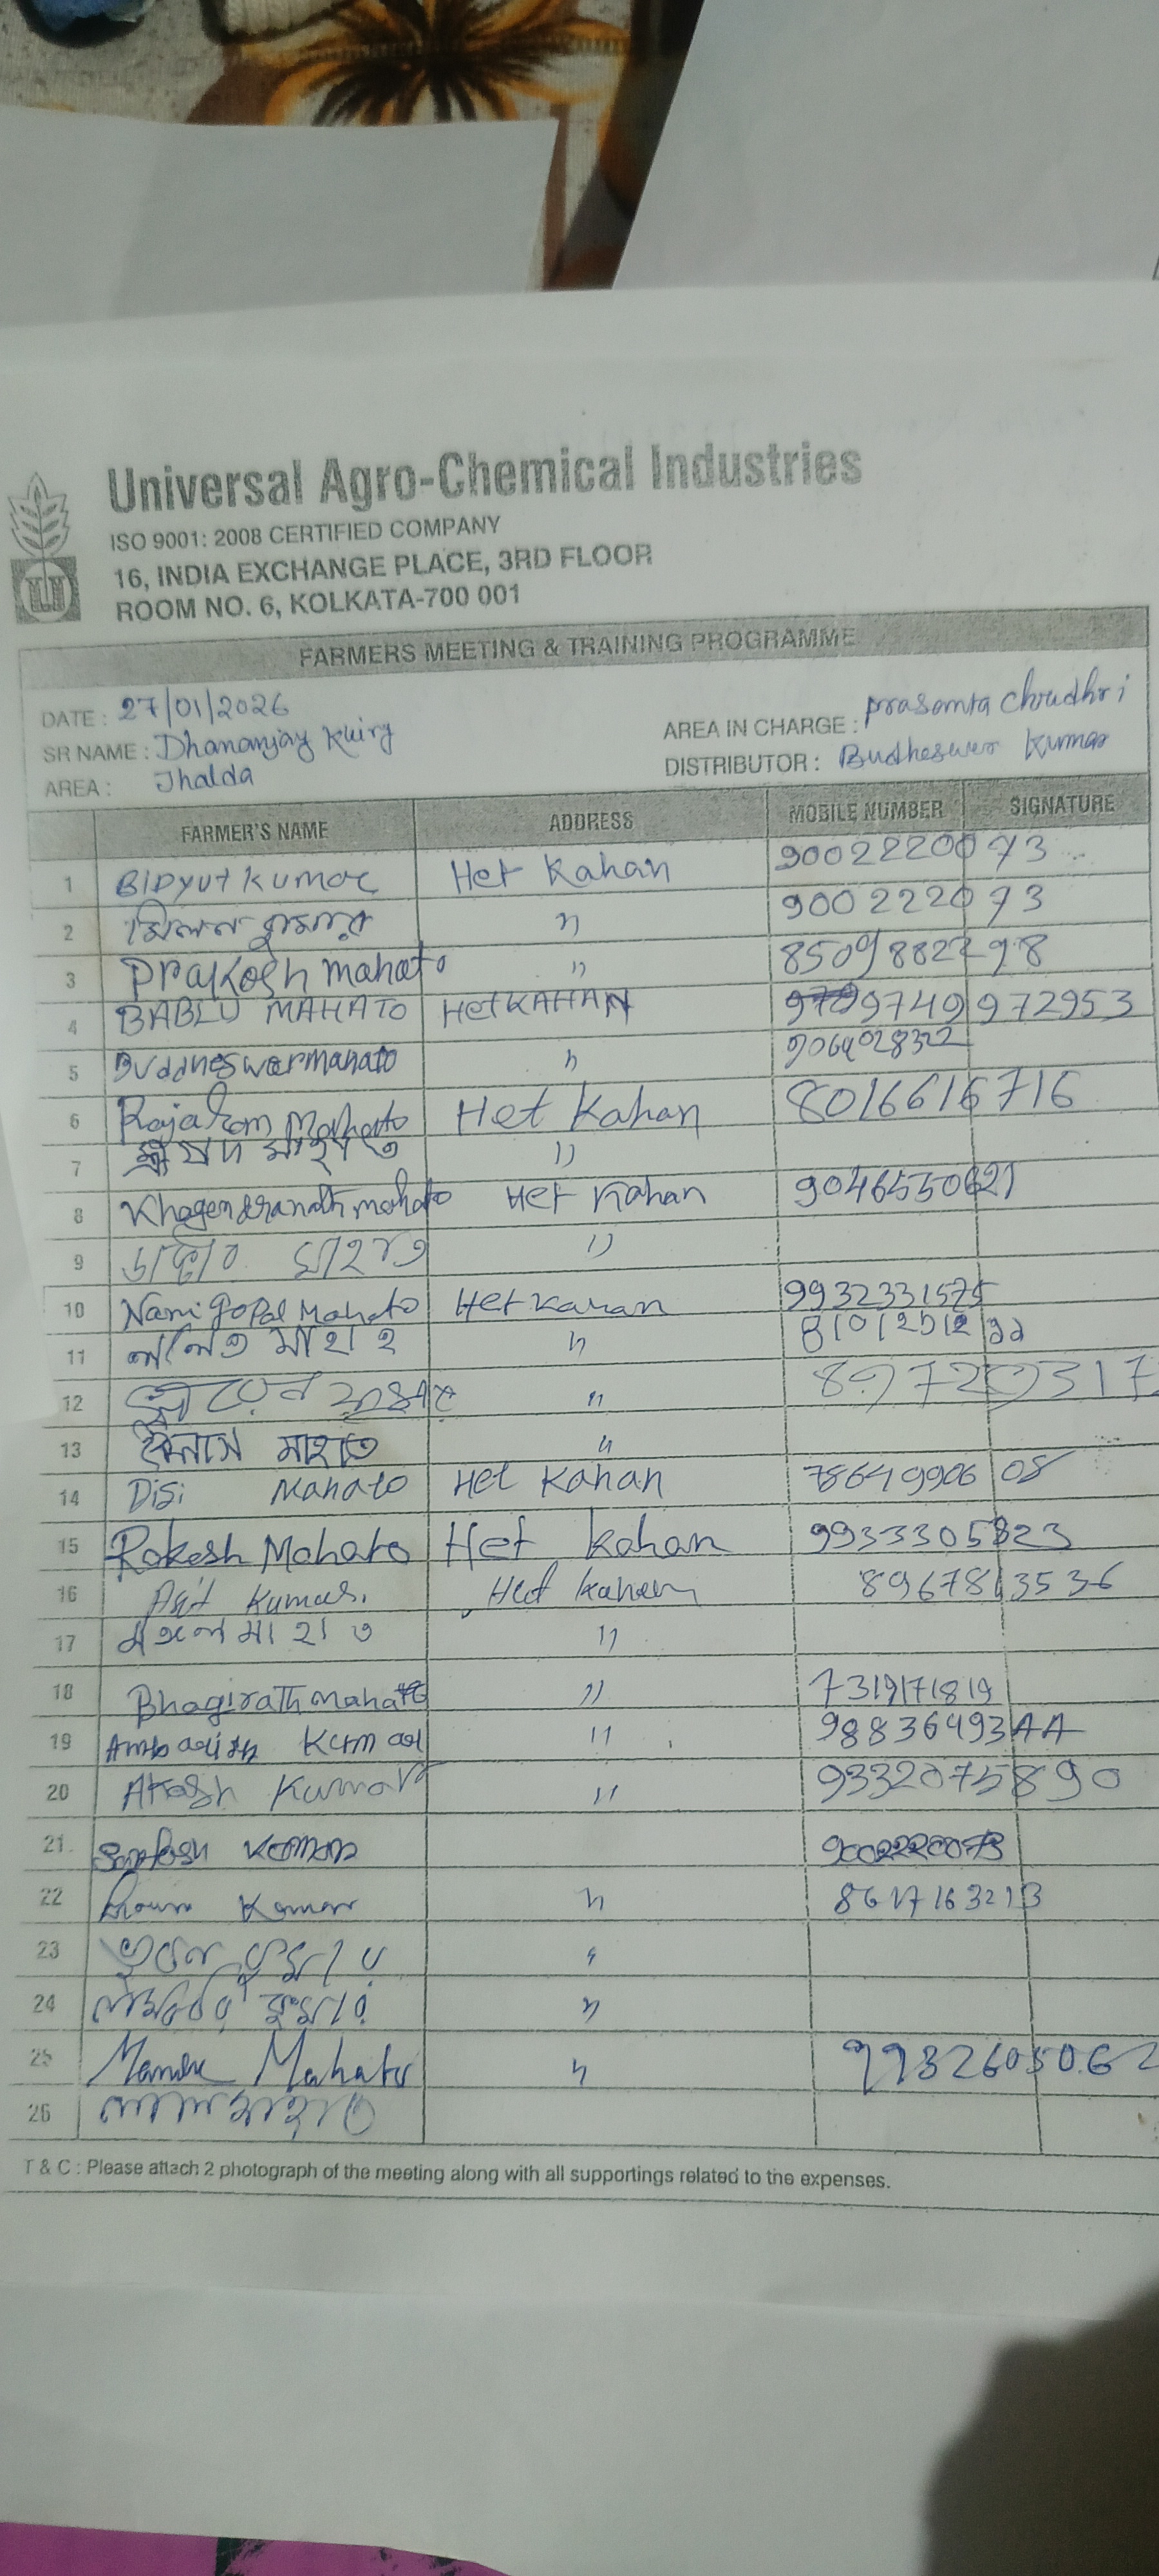 Universal Agro-Chemical Industries
ISO 9001: 2008 CERTIFIED COMPANY
16, INDIA EXCHANGE PLACE, 3RD FLOOR
ROOM NO. 6, KOLKATA-700 001
FARMERS MEETING & TRAINING PROGRAMME
DATE : 27/01/2026
AREA IN CHARGE : Prasomta Choudhri
SR NAME : Dhananjay Kuiry
DISTRIBUTOR : Budheswer Kumar
AREA : Jhalda
FARMER'S NAME ADDRESS MOBILE NUMBER SIGNATURE
1 BIDYUT KUMAR Het Kahan 9002220073
2 মিলন কুমার " 900222073
3 Prakosh mahato " 8509882298
4 BABLU MAHATO Het KAHAN 9749972953
5 Buddheswar mahato " 9064028322
6 Rajaram Mahato Het Kahan 8016616716
7 মাহাত "
8 Khagendranath mahato Het Kahan 9046550621
9 মাহাত "
10 Nani Gopal Mahato Het Kahan 9932331575
11 ললিত মাহাত "
12 "
13 মাহাত "
14 Disi Mahato Het Kahan 7864990608
15 Rokesh Mahato Het kahan 9933305823
16 Asit Kumar. Het kahan 8967813536
17 মাহাত "
18 Bhagirath Mahato " 7319171819
19 Kumar " 98836493AA
20 Akash Kumar " 9332075890
21. Santosh Kumar 9002220073
22 Kumar " 8617163213
23 কুমার "
24 কুমার "
25 Mahato " 9932605062
26 মাহাত
T & C : Please attach 2 photograph of the meeting along with all supportings related to the expenses.